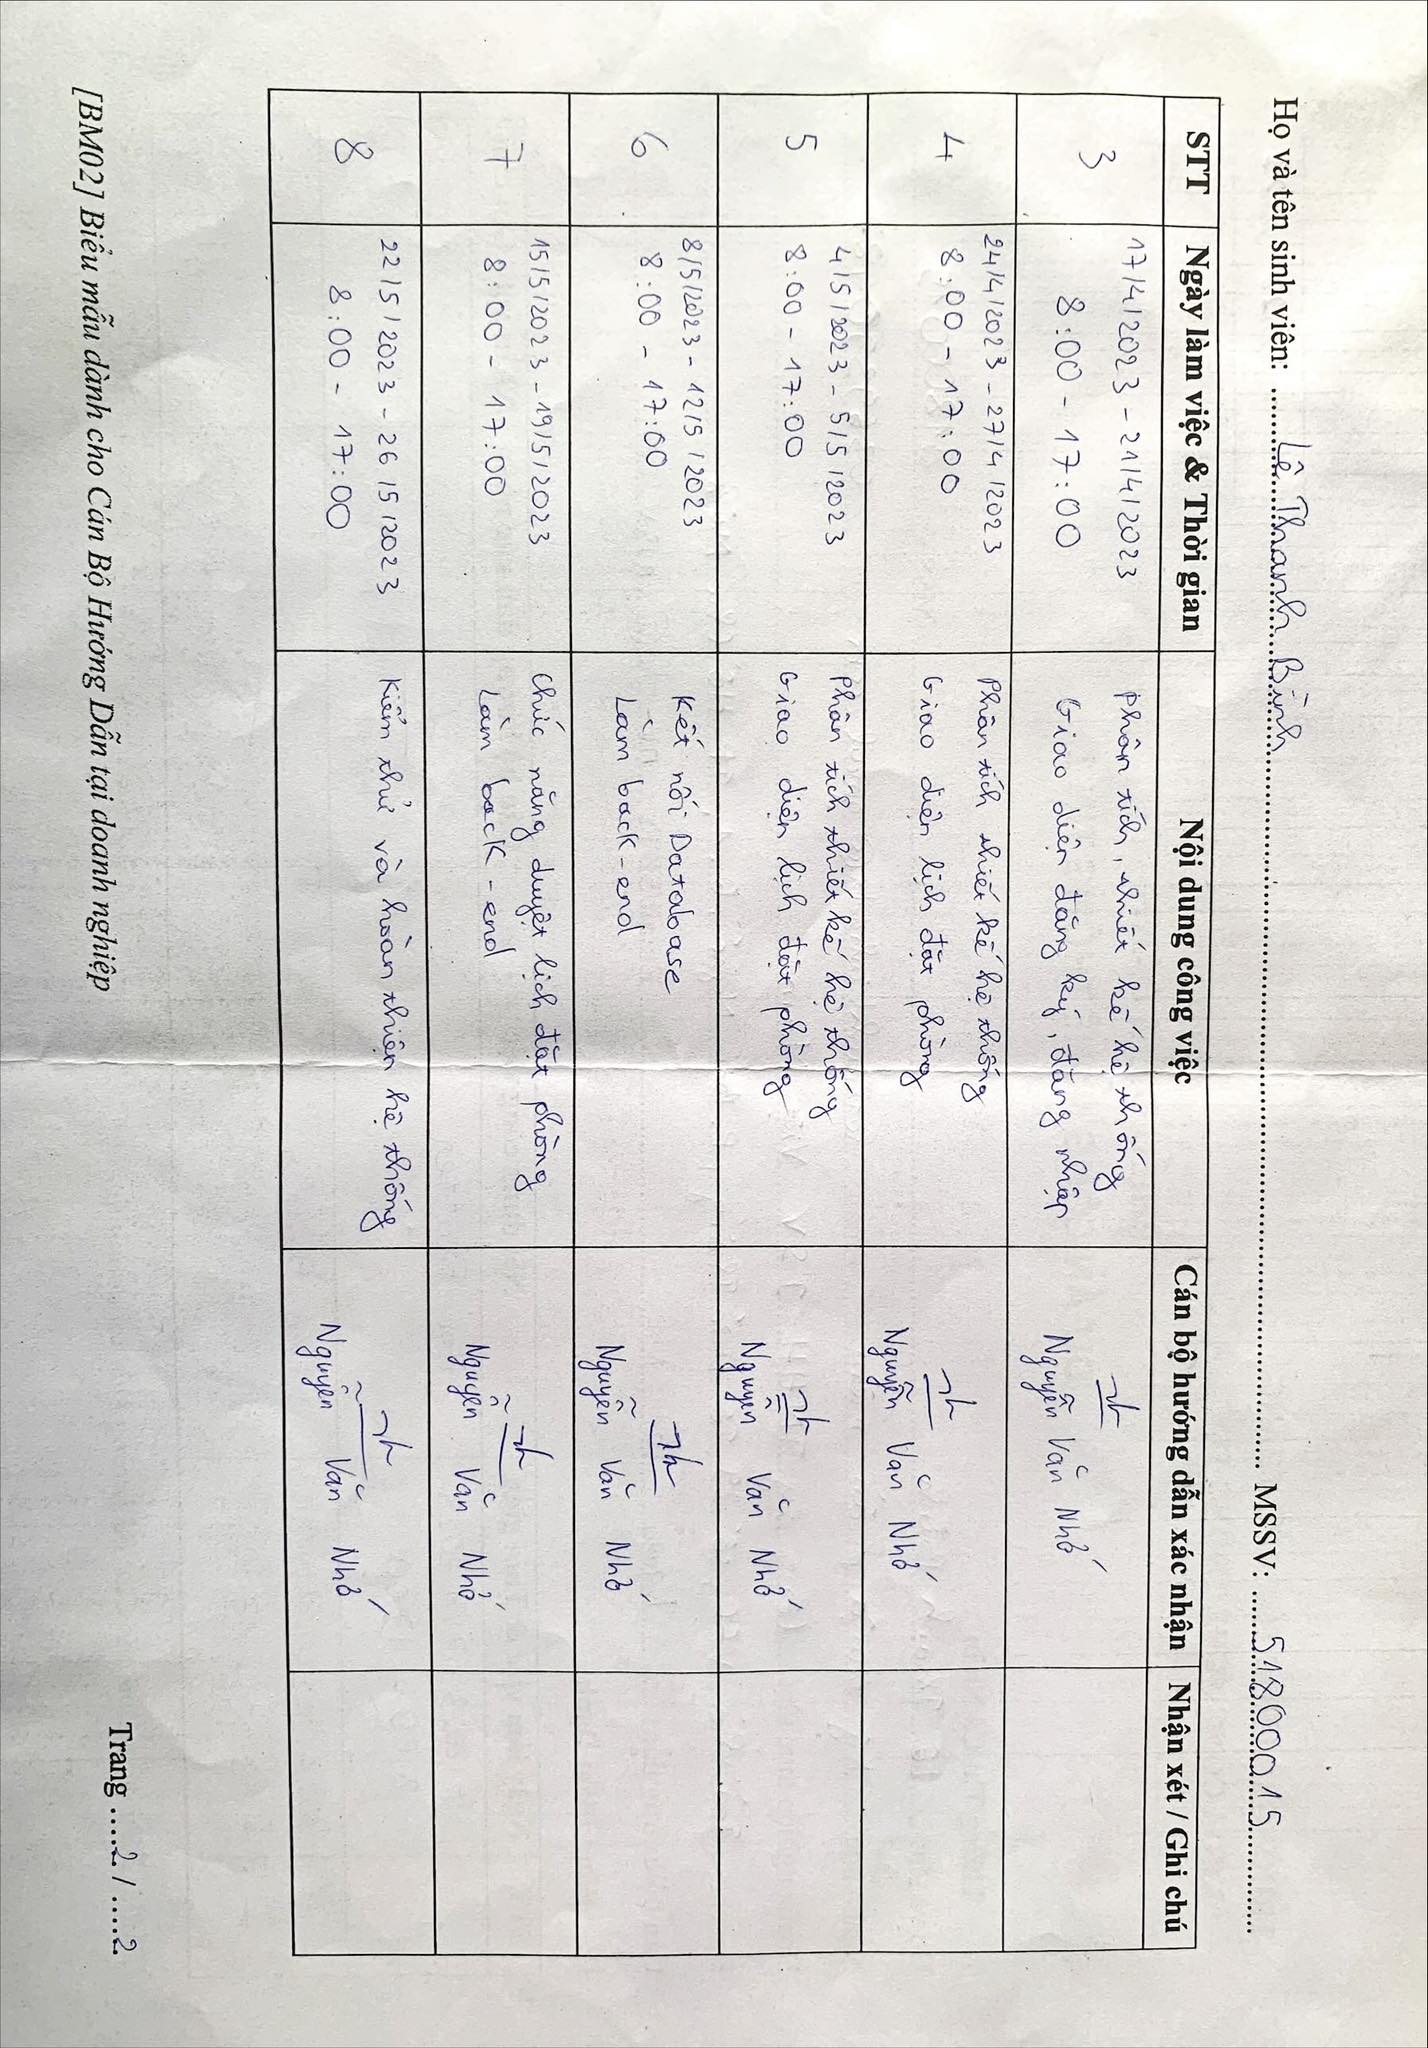 Họ và tên sinh viên: Lê Thanh Bình MSSV: 51800015
STT Ngày làm việc & Thời gian Nội dung công việc Cán bộ hướng dẫn xác nhận Nhận xét / Ghi chú
3
17/4/2023 - 21/4/2023
8:00 - 17:00
Phân tích, thiết kế hệ thống
Giao diện đăng ký, đăng nhập
Nguyễn Văn Nhớ
4
24/4/2023 - 27/4/2023
8:00 - 17:00
Phân tích thiết kế hệ thống
Giao diện lịch đặt phòng
Nguyễn Văn Nhớ
5
4/5/2023 - 5/5/2023
8:00 - 17:00
Phân tích thiết kế hệ thống
Giao diện lịch đặt phòng
Nguyễn Văn Nhớ
6
8/5/2023 - 12/5/2023
8:00 - 17:00
Kết nối Database
Làm back-end
Nguyễn Văn Nhớ
7
15/5/2023 - 19/5/2023
8:00 - 17:00
Chức năng duyệt lịch đặt phòng
Làm back-end
Nguyễn Văn Nhớ
8
22/5/2023 - 26/5/2023
8:00 - 17:00
Kiểm thử và hoàn thiện hệ thống
Nguyễn Văn Nhớ
[BM02] Biểu mẫu dành cho Cán Bộ Hướng Dẫn tại doanh nghiệp
Trang ....2 / .....2